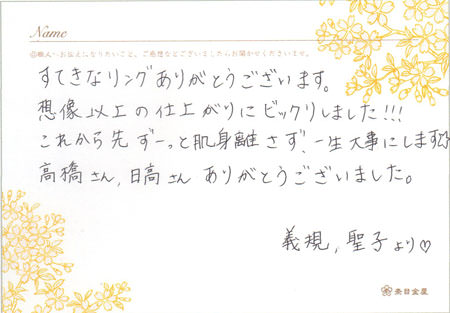 Name
◎職人へお伝えになりたいこと、ご感想などございましたらお聞かせくださいませ。
すてきなリングありがとうございます。
想像以上の仕上がりにビックリしました!!!
これから先ずーっと肌身離さず、一生大事にします
高橋さん,日高さん ありがとうございました。
義規,聖子より♡
杢目金屋